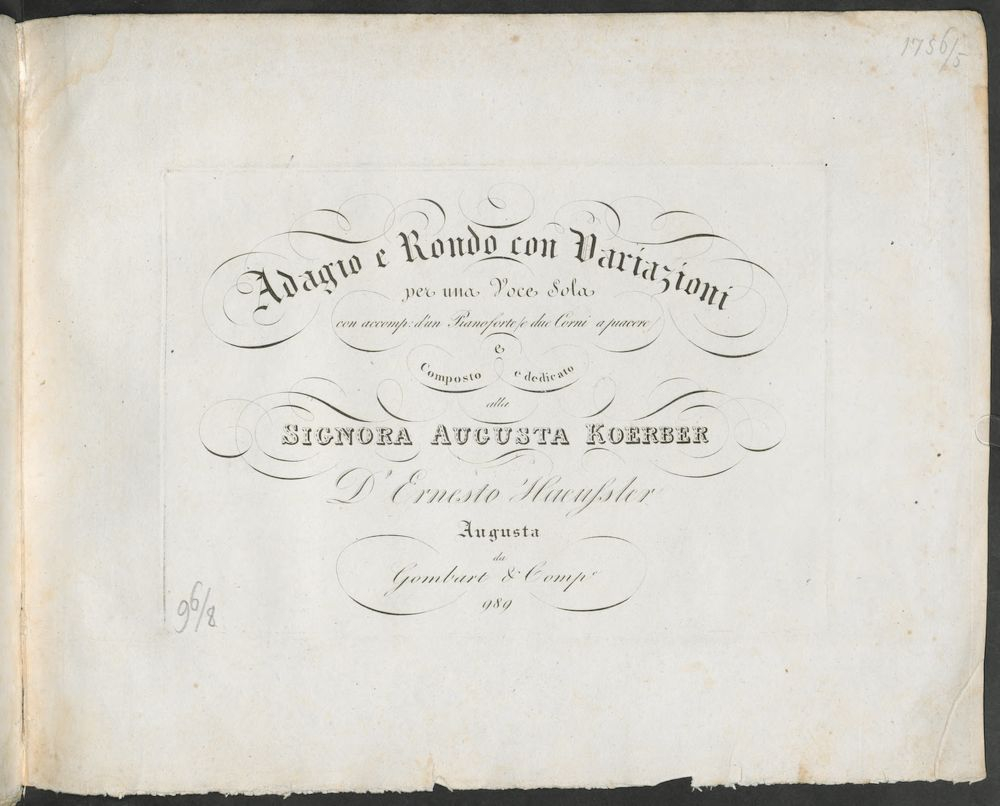 1756/5
Adagio e Rondo con Variazioni
per una Voce Sola
con accomp: d'un Pianoforte /e due Corni a piacere/
e
Composto e dedicato
alla
SIGNORA AUGUSTA KOERBER
D' Ernesto Haeuſsler
Augusta
da
Gombart & Comp.e
989
96/8